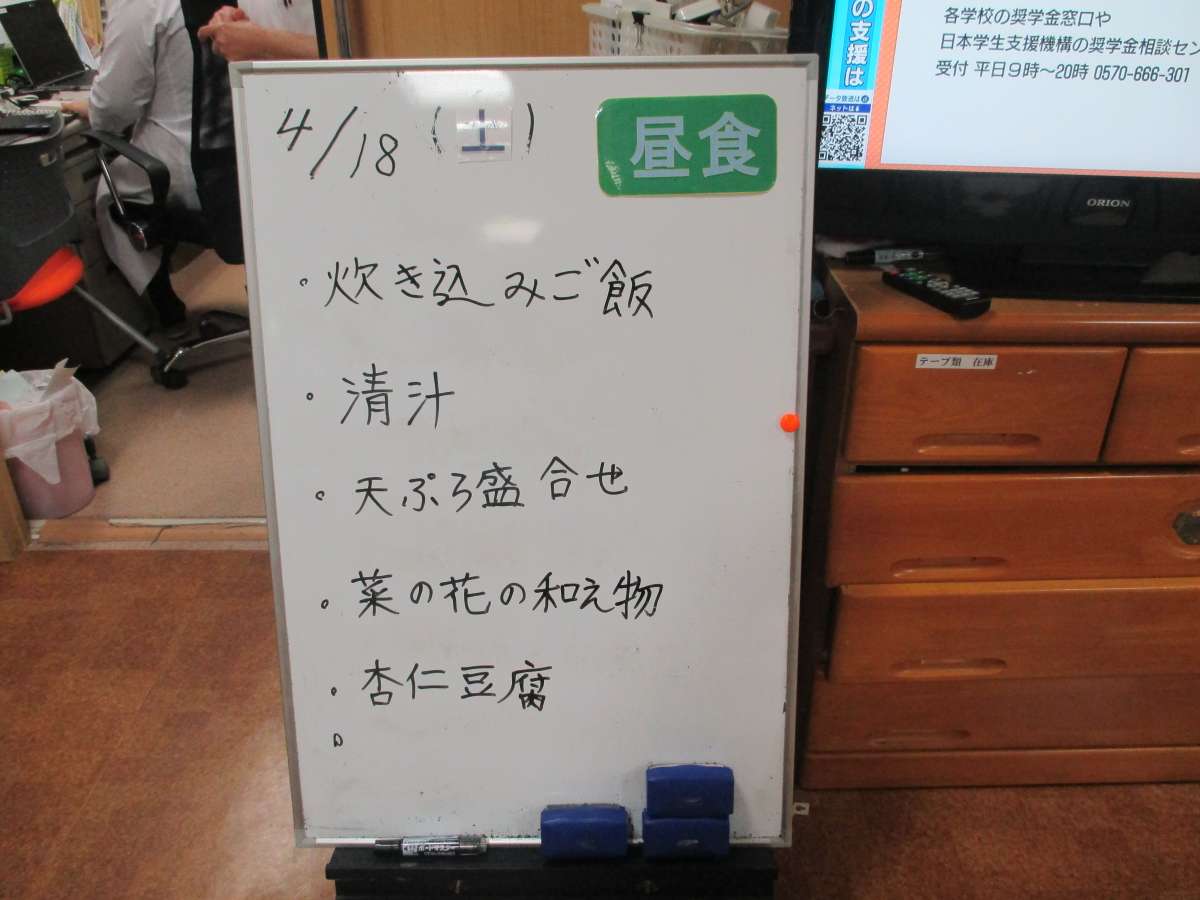 4/18 (土)
昼食
・炊き込みご飯
・清汁
・天ぷら盛合せ
・菜の花の和え物
・杏仁豆腐
の支援は
データ放送はd
ネットは
各学校の奨学金窓口や
日本学生支援機構の奨学金相談セン
受付 平日9時～20時 0570-666-301
ORION
テープ類 在庫
ボードマスター